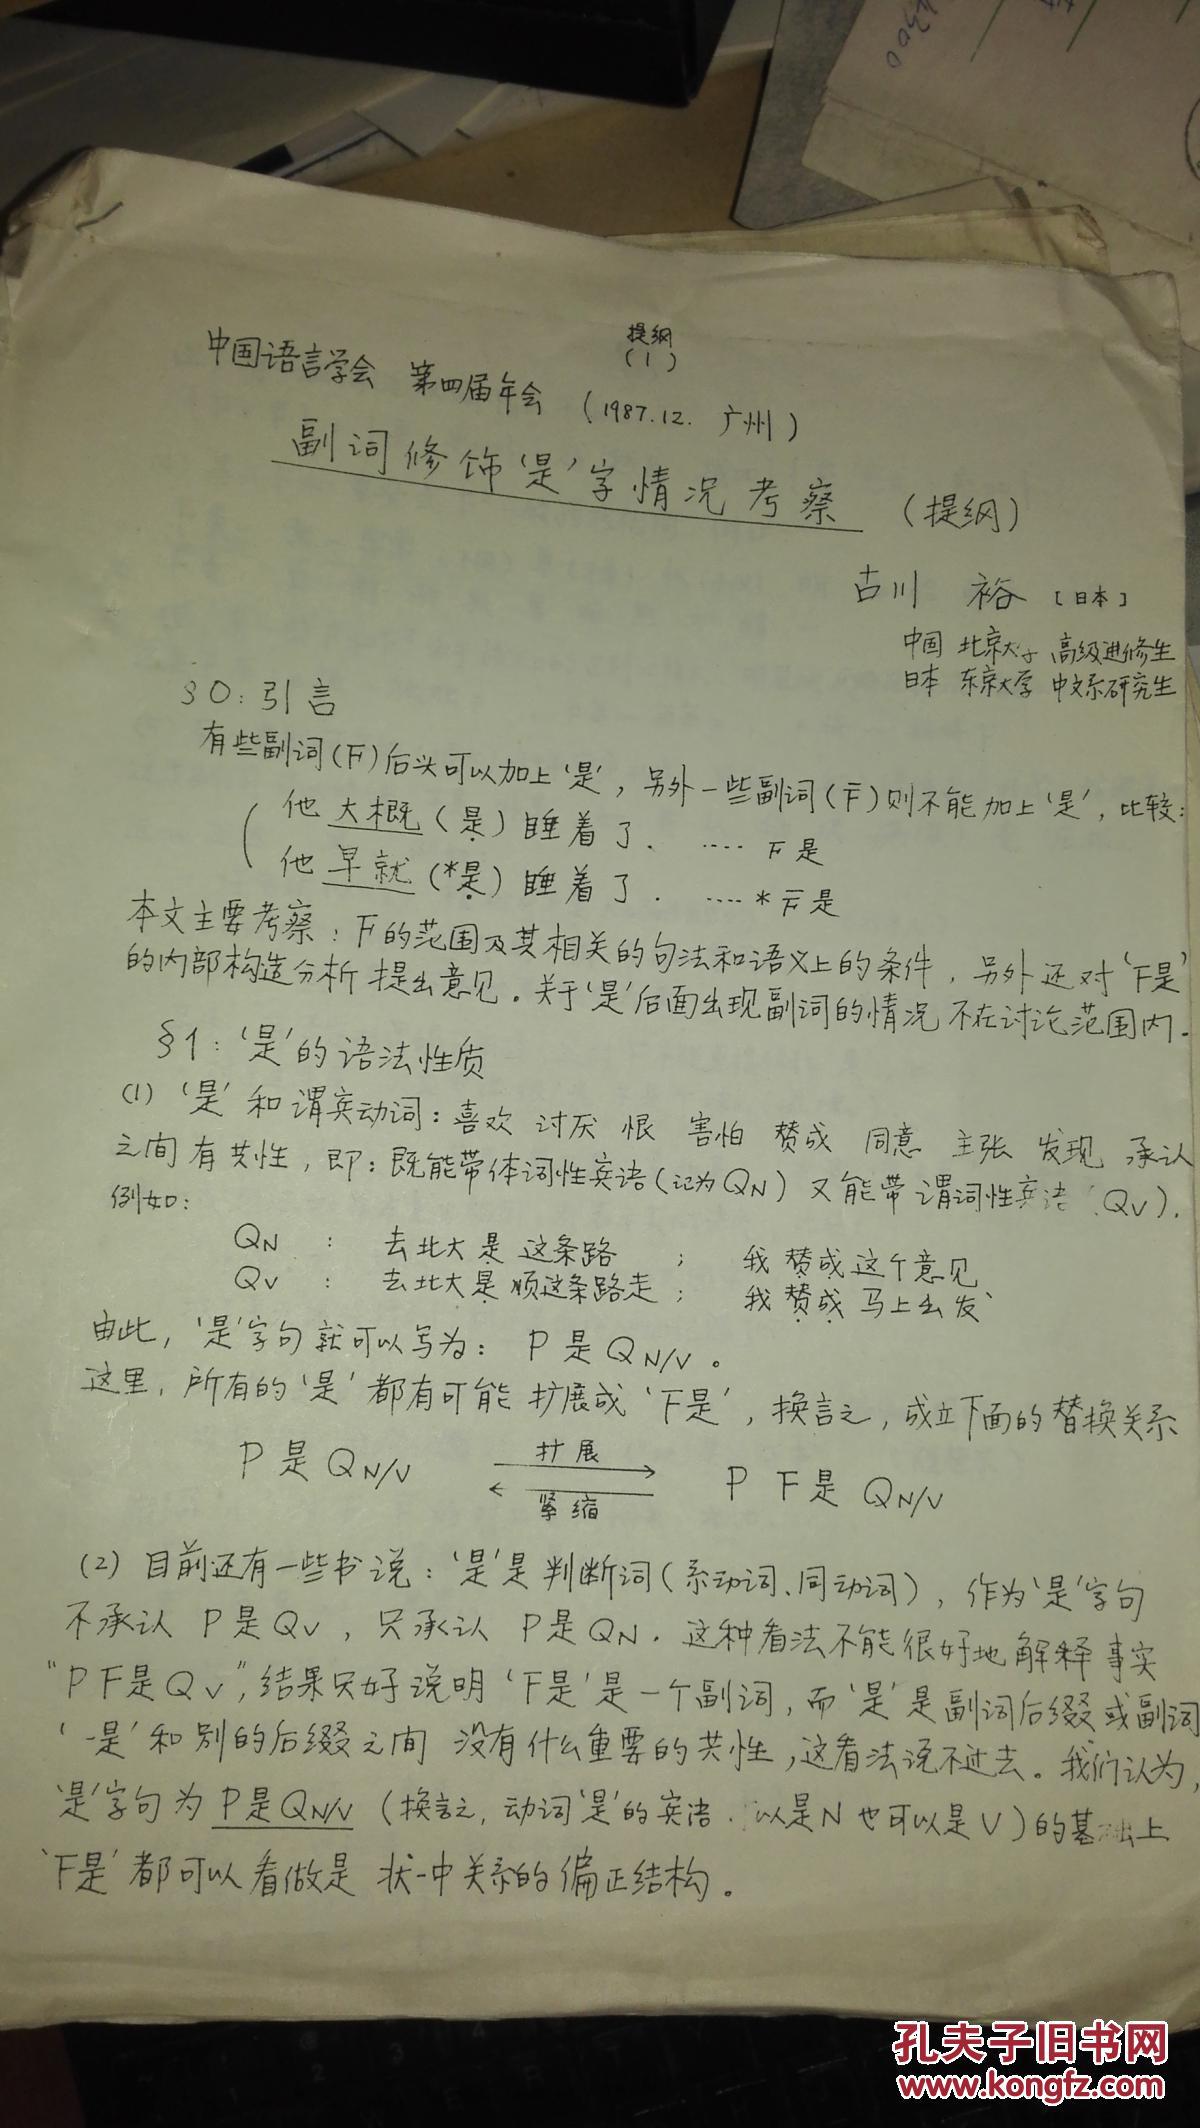 4300
提纲
(1)
中国语言学会 第四届年会 (1987.12. 广州)
副词修饰‘是’字情况考察 (提纲)
古川 裕 [日本]
中国 北京大学 高级进修生
日本 东京大学 中文系研究生
§0:引言
有些副词(F)后头可以加上‘是’,另外一些副词(F̅)则不能加上‘是’,比较:
他大概(是)睡着了. ‥‥ F是
他早就(*是)睡着了. ‥‥ *F̅是
本文主要考察:F的范围及其相关的句法和语义上的条件,另外还对‘F是’
的内部构造分析提出意见。关于‘是’后面出现副词的情况不在讨论范围内.
§1:‘是’的语法性质
(1) ‘是’和谓宾动词:喜欢 讨厌 恨 害怕 赞成 同意 主张 发现 承认
之间有共性,即:既能带体词性宾语(记为QN)又能带谓词性宾语(QV).
例如:
QN : 去北大是这条路 ; 我赞成这个意见
QV : 去北大是顺这条路走; 我赞成马上出发
由此,‘是’字句就可以写为: P是QN/V。
这里,所有的‘是’都有可能扩展成‘F是’,换言之,成立下面的替换关系
P是QN/V 扩展 紧缩 P F是 QN/V
(2) 目前还有一些书说:‘是’是判断词(系动词、同动词),作为‘是’字句
不承认 P是QV,只承认 P是QN. 这种看法不能很好地解释事实
“P F是QV”,结果只好说明‘F是’是一个副词,而‘是’是副词后缀或副词
‘-是’和别的后缀之间没有什么重要的共性,这看法说不过去。我们认为,
‘是’字句为P是QN/V(换言之,动词‘是’的宾语 以是N也可以是V)的基础上
‘F是’都可以看做是 状-中关系的偏正结构。
孔夫子旧书网
www.kongfz.com